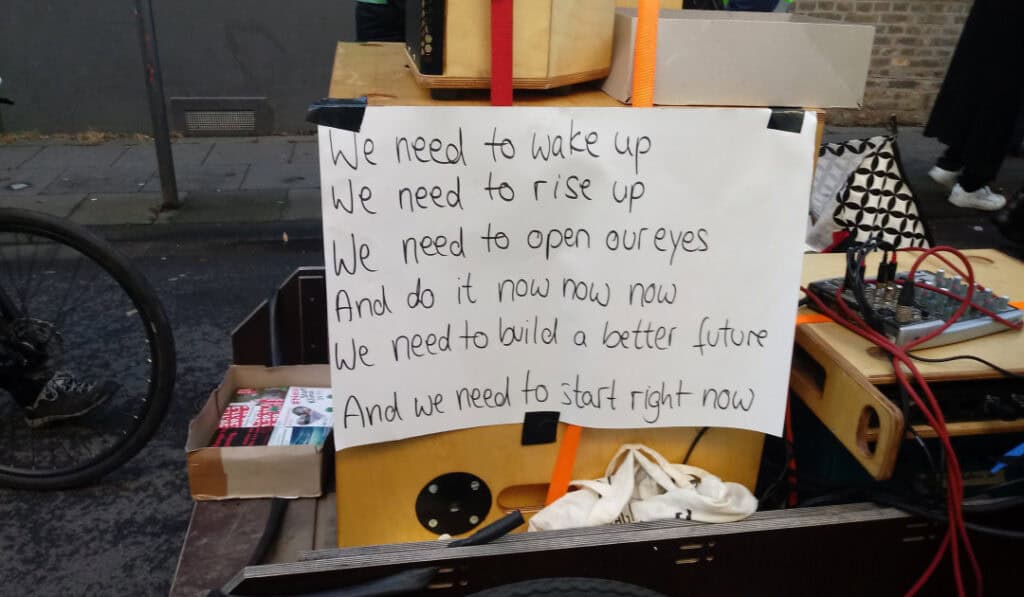 We need to wake up
We need to rise up
We need to open our eyes
And do it now now now
We need to build a better future
And we need to start right now